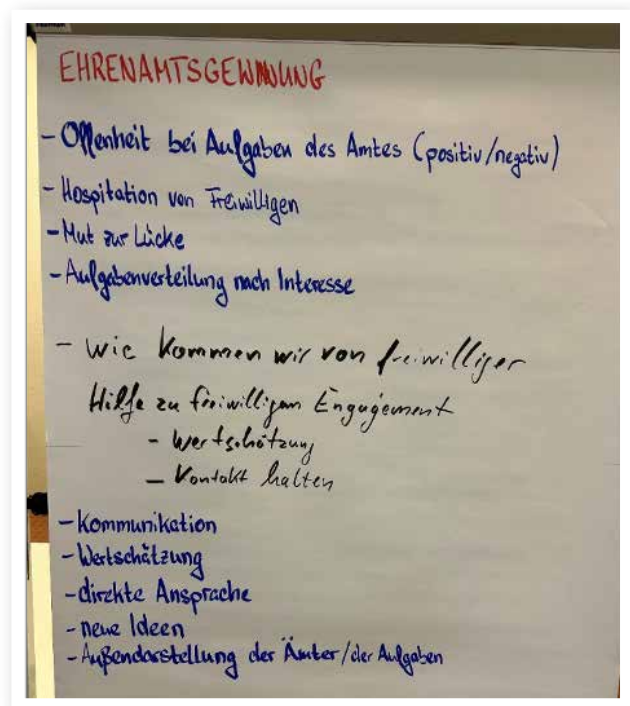 EHRENAMTSGEWINNUNG
- Offenheit bei Aufgaben des Amtes (positiv/negativ)
- Hospitation von Freiwilligen
- Mut zur Lücke
- Aufgabenverteilung nach Interesse
- Wie kommen wir von freiwilliger
Hilfe zu freiwilligem Engagement
- Wertschätzung
- Kontakt halten
- Kommunikation
- Wertschätzung
- direkte Ansprache
- neue Ideen
- Außendarstellung der Ämter/der Aufgaben